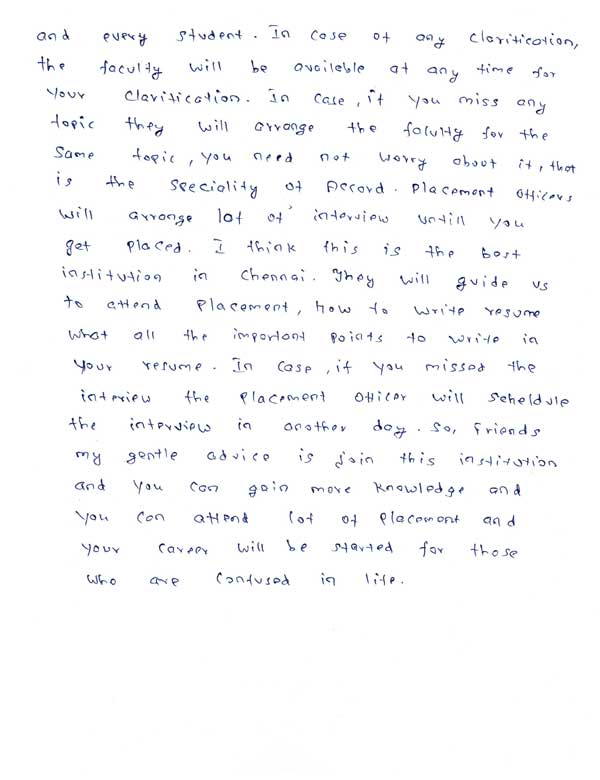 and every student. In case of any clarification,
the faculty will be available at any time for
your clarification. In case, if you miss any
topic they will arrange the faculty for the
same topic, you need not worry about it, that
is the speciality of Accord. Placement officers
will arrange lot of interview untill you
get placed. I think this is the best
institution in Chennai. They will guide us
to attend placement, how to write resume
what all the important points to write in
your resume. In case, if you missed the
interiew the placement officer will scheldule
the interview in another day. So, friends
my gentle advice is join this institution
and you can gain more knowledge and
you can attend lot of placement and
your career will be started for those
who are confused in life.